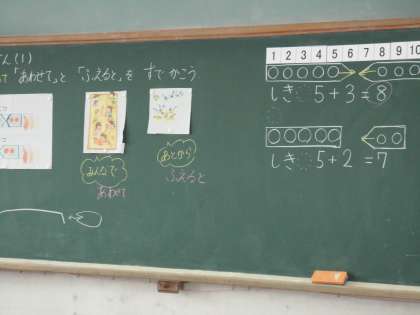 ん(1)
て「あわせて」と「ふえると」を すでかこう
みんなで
あわせて
あとから
ふえると
1 2 3 4 5 6 7 8 9 10
しき 5+3=8
しき 5+2=7